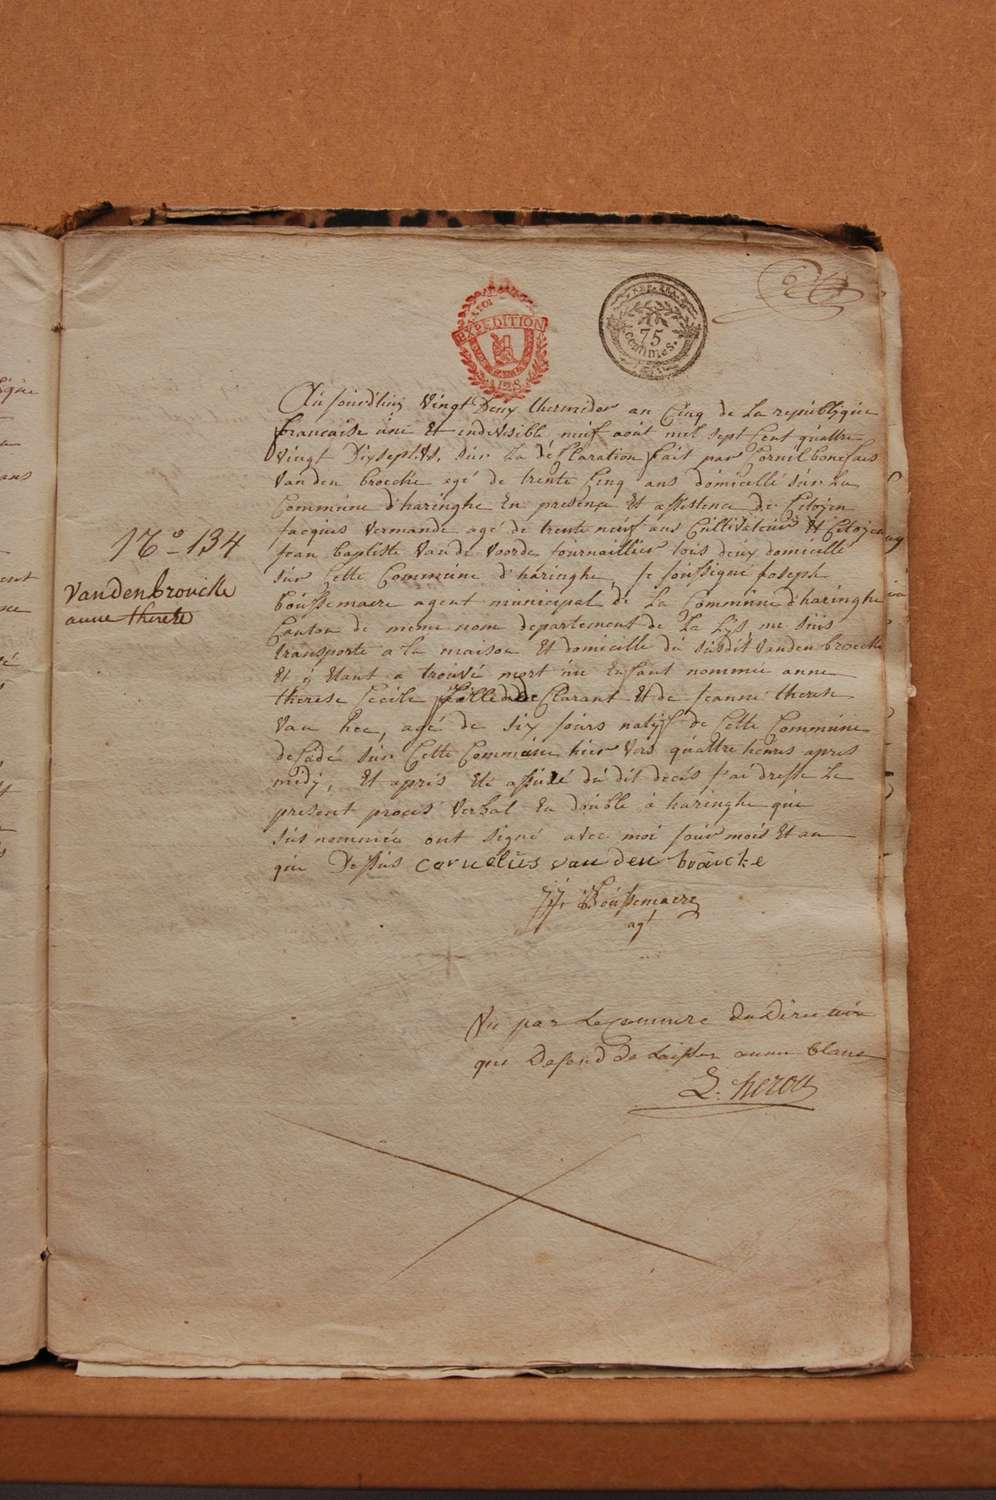 EXPEDITION
REP. FRA.
75
centimes.
Aujourdhuy vingt Deux thermidor an Cinq de La republique
francaise une Et indivisible neuf août mil sept Cent quattre
vingt Dixsept vs. sur La déClaration fait par Cornil bonefaes
vanden broecke egé de trente Cinq ans domicellé sur La
Commune d'haringhe En presençe Et assistence de Citoÿen
jacques vermande agé de trente neuf ans Cultivateur Et Citoÿen
jean baptiste vande voorde journaillier tois deux domicellé
sur Cette Commune d'haringhe, je soussigné joseph
boussemaere agent municipal de La Commune d'haringhe
Canton de même nom departement de La Lÿs, me suis
transporté a la maison Et domicille du susdit vanden broecke
Et ÿ Etant a trouvé mort une Enfant nommée anne
therese Cecile fille de Clarant Et de jeanne therese
van hee, agé de six jours natÿf de Cette Commune
deCadé sur Cette Commune hier vers quattre heures apres
midÿ, Et après Eté assuré du dit decés j'ai dresse Le
present procès verbal En double à haringhe que
sus nommées ont signé avec moi jour mois Et an
que Dessus cornelius van den broucke
JJ: Boussemaere
agt
N.o 134
vandenbroucke
anne therese
Vu par Le Commre du Directoire
qui Defend de Laisser aucun blanc
L. herou